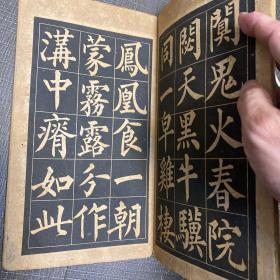 闃鬼火春院
閟天黑牛驥
同一皁雞棲
鳳凰食一朝
蒙霧露分作
溝中瘠如此